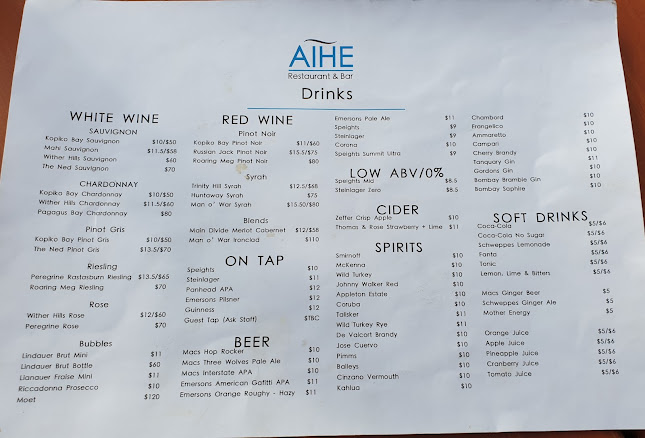 AIHE
Restaurant & Bar
Drinks
WHITE WINE
SAUVIGNON
Kopiko Bay Sauvignon $10/$50
Mahi Sauvignon $11.5/$58
Wither Hills Sauvignon $60
The Ned Sauvignon $70
CHARDONNAY
Kopiko Bay Chardonnay $10/$50
Wither Hills Chardonnay $11.5/$60
Pagagus Bay Chardonnay $80
Pinot Gris
Kopiko Bay Pinot Gris $10/$50
The Ned Pinot Gris $13.5/$70
Riesling
Peregrine Rastasburn Riesling $13.5/$65
Roaring Meg Riesling $70
Rose
Wither Hills Rose $12/$60
Peregrine Rose $70
Bubbles
Lindauer Brut Mini $11
Lindauer Brut Bottle $60
Lianauer Fraise Mini $11
Riccadonna Prosecco $10
Moet $120
RED WINE
Pinot Noir
Kopiko Bay Pinot Noir $11/$60
Russian Jack Pinot Noir $15.5/$75
Roaring Meg Pinot Noir $80
Syrah
Trinity Hill Syrah $12.5/$68
Huntaway Syrah $75
Man o' War Syrah $15.50/$80
Blends
Main Divide Merlot Cabernet $12/$58
Man o' War Ironclad $110
ON TAP
Speights $10
Steinlager $11
Panhead APA $12
Emersons Pilsner $12
Guinness $12
Guest Tap (Ask Staff) $TBC
BEER
Macs Hop Rocker $10
Macs Three Wolves Pale Ale $10
Macs Interstate APA $10
Emersons American Gafitti APA $11
Emersons Orange Roughy - Hazy $11
Emersons Pale Ale $11
Speights $9
Steinlager $9
Corona $10
Speights Summit Ultra $9
LOW ABV/0%
Speights Mid $8.5
Steinlager Zero $8.5
CIDER
Zeffer Crisp Apple $10
Thomas & Rose Strawberry + Lime $11
SPIRITS
Smirnoff $10
McKenna $10
Wild Turkey $10
Johnny Walker Red $10
Appleton Estate $10
Coruba $10
Talisker $11
Wild Turkey Rye $11
De Valcort Brandy $10
Jose Cuervo $10
Pimms $10
Baileys $10
Cinzano Vermouth $10
Kahlua $10
Chambord $10
Frongelico $10
Ammaretto $10
Campari $10
Cherry Brandy $10
Tanquary Gin $11
Gordons Gin $10
Bombay Bramble Gin $10
Bombay Saphire $10
SOFT DRINKS
Coca-Cola $5/$6
Coca-Cola No Sugar $5/$6
Schweppes Lemonade $5/$6
Fanta $5/$6
Tonic $5/$6
Lemon, Lime & Bitters $5/$6
Macs Ginger Beer $5
Schweppes Ginger Ale $5
Mother Energy $5
Orange Juice $5/$6
Apple Juice $5/$6
Pineapple Juice $5/$6
Cranberry Juice $5/$6
Tomato Juice $5/$6